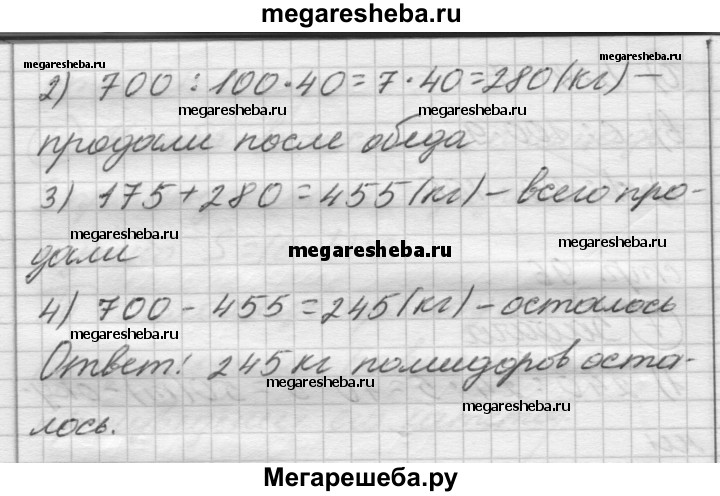 megaresheba.ru
megaresheba.ru
megaresheba.ru
2) 700 : 100 · 40 = 7 · 40 = 280 (кг) –
megaresheba.ru
megaresheba.ru
продали после обеда
3) 175 + 280 = 455 (кг) – всего про-
megaresheba.ru
megaresheba.ru
megaresheba.ru
дали
4) 700 - 455 = 245 (кг) – осталось
megaresheba.ru
Ответ: 245 кг помидоров оста-
megaresheba.ru
megaresheba.ru
лось.
Мегарешеба.ру